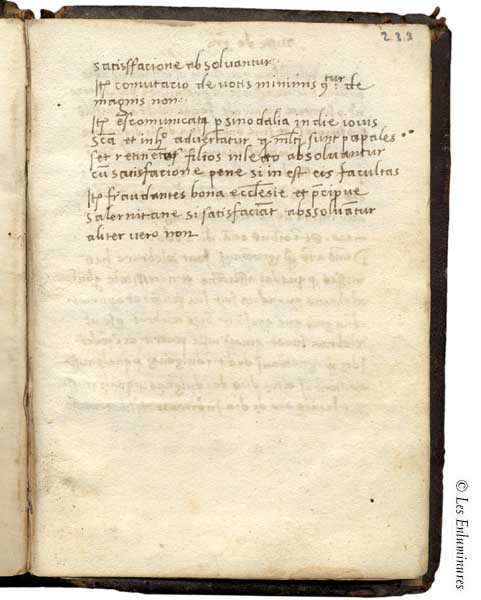 233
satisffacione absolvantur.
Itē comutacio de votis minimis 9.tur de
magnis non.
Itē exꝯmunicati p sinodalia in die iovis
Scā et in hoc advertatur q mlti sunt papales
set retinētes filios in lecto absolvantur
cū satisfacione pene si in est eis facultas
Itē fraudantes bona ecclesie et pcipue
salernitane si satisfaciāt abssolvātur
aliter vero non
© Les Enluminures